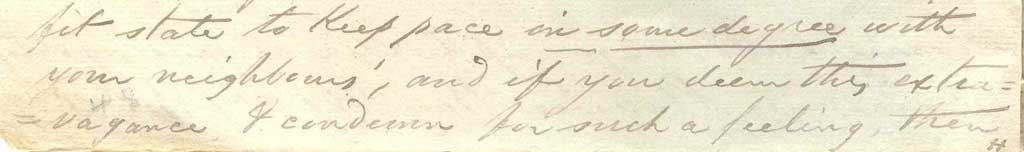 fit state to keep pace in some degree with
your neighbours', and if you deem this extra=
=vagance & condemn for such a feeling, then